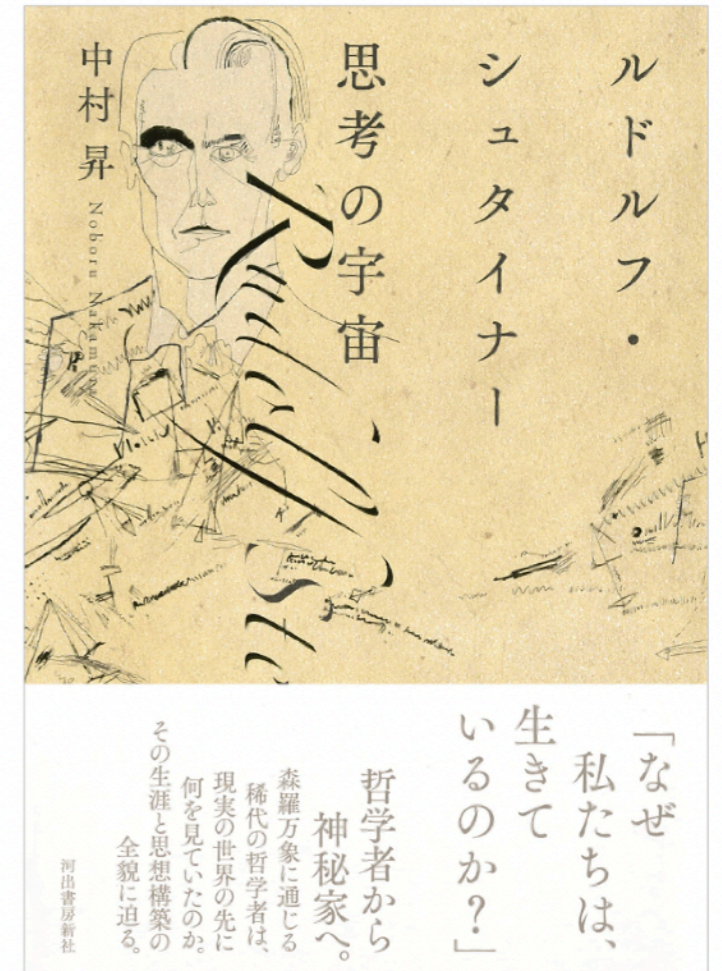 ルドルフ・
シュタイナー
思考の宇宙
中村 昇
Noboru Nakamura
Rudolf Ste
「なぜ
私たちは、
生きて
いるのか?」
哲学者から
神秘家へ。
森羅万象に通じる
稀代の哲学者は、
現実の世界の先に
何を見ていたのか。
その生涯と思想構築の
全貌に迫る。
河出書房新社